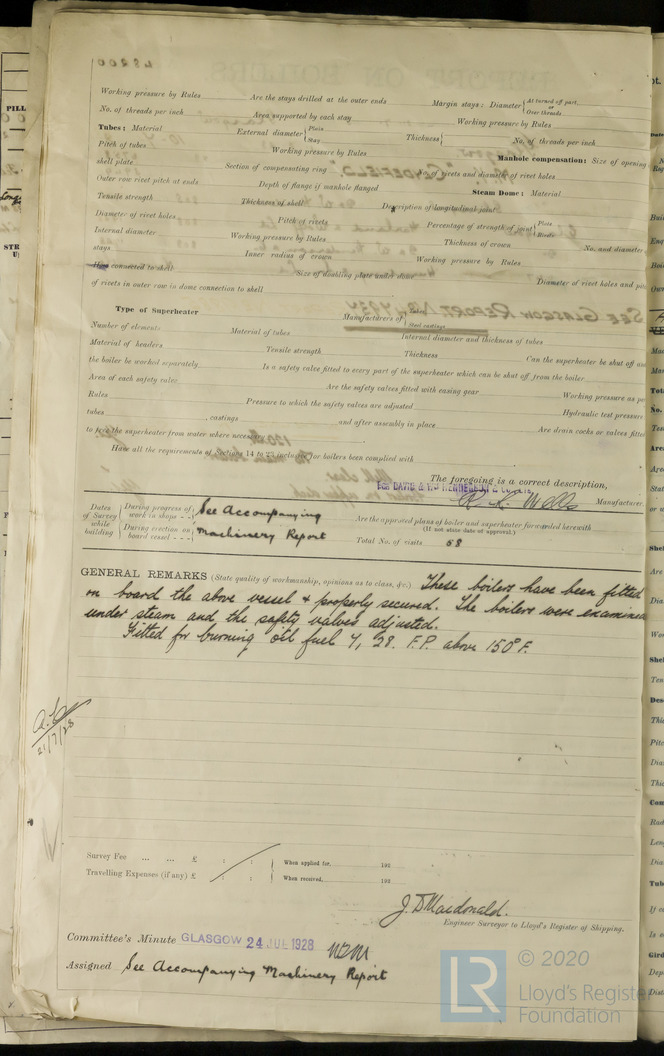 48200
Working pressure by Rules Are the stays drilled at the outer ends Margin stays: Diameter { At turned off part, or Over threads
No. of threads per inch Area supported by each stay Working pressure by Rules
Tubes: Material External diameter { Plain Stay Thickness { No. of threads per inch
Pitch of tubes Working pressure by Rules Manhole compensation: Size of opening
shell plate Section of compensating ring of rivets and diameter of rivet holes
Outer row rivet pitch at ends Depth of flange if manhole flanged Steam Dome: Material
Tensile strength Thickness of shell Description of longitudinal joint
Diameter of rivet holes Pitch of rivets Percentage of strength of joint { Plate Rivets
Internal diameter Working pressure by Rules Thickness of crown No. and diameter
stays Inner radius of crown Working pressure by Rules
How connected to shell Size of doubling plate under dome Diameter of rivet holes and
of rivets in outer row in dome connection to shell
SEE GLASGOW REPORT No. 48034
Type of Superheater Manufacturers of { Tubes Steel castings
Number of elements Material of tubes Internal diameter and thickness of tubes
Material of headers Tensile strength Thickness Can the superheater be shut off
the boiler be worked separately Is a safety valve fitted to every part of the superheater which can be shut off from the boiler
Area of each safety valve Are the safety valves fitted with easing gear Working pressure as
Rules Pressure to which the safety valves are adjusted Hydraulic test pressure
tubes , castings and after assembly in place Are drain cocks or valves fitted
to free the superheater from water where necessary
Have all the requirements of Sections 14 to 23 inclusive for boilers been complied with
The foregoing is a correct description,
FOR DAVID & Wm HENDERSON & Co LTD.
R. K. Wells Manufacturer.
Dates of Survey while building { During progress of work in shops - - During erection on board vessel - - -
See Accompanying
Machinery Report
Are the approved plans of boiler and superheater forwarded herewith
(If not state date of approval.)
Total No. of visits 58
GENERAL REMARKS (State quality of workmanship, opinions as to class, &c.) These boilers have been fitted
on board the above vessel & properly secured. The boilers were examined
under steam and the safety valves adjusted.
Fitted for burning oil fuel 7, 28. F.P. above 150°F.
21/7/28
Survey Fee ... ... £ : : When applied for, 192
Travelling Expenses (if any) £ : : When received, 192
J. D. Macdonald.
Engineer Surveyor to Lloyd's Register of Shipping.
Committee's Minute GLASGOW 24 JUL 1928
Assigned See Accompanying Machinery Report
LR © 2020
Lloyd's Register
Foundation